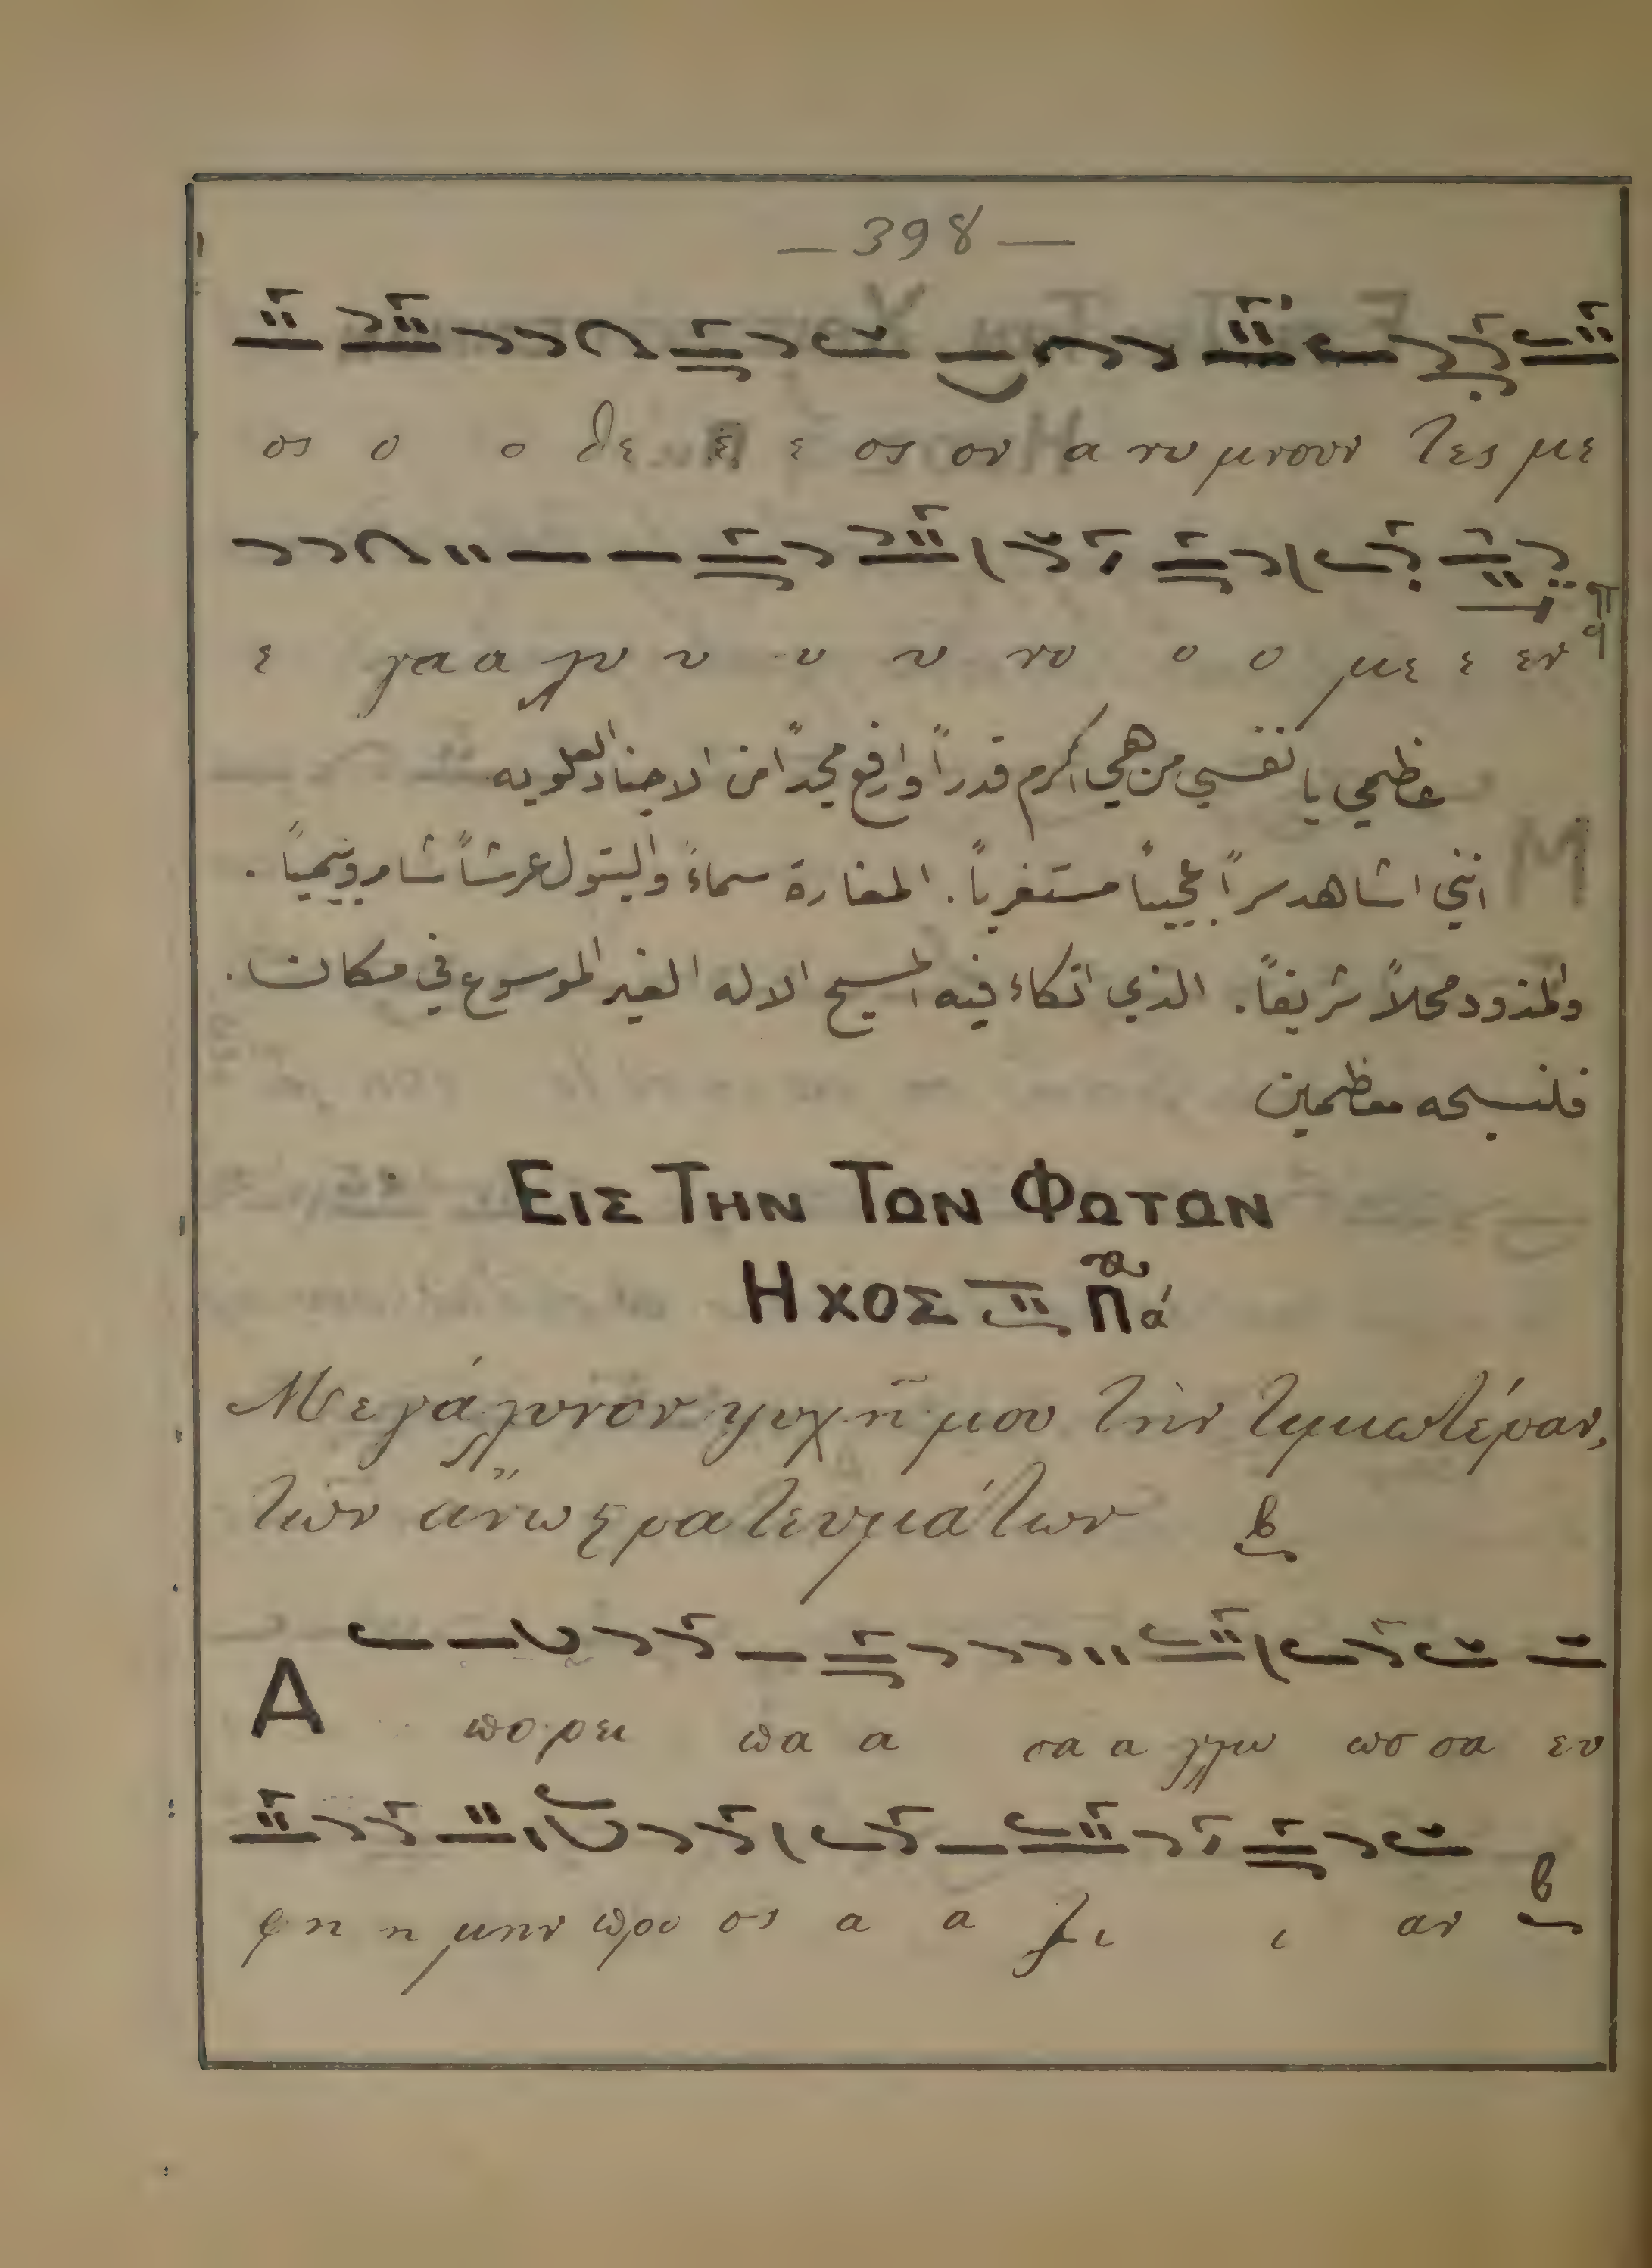 — 398 —
ος ο ο θε ε ε ος ον α νυ μνουν τες με
ε γα α λυ υ υ υ νο ο ο με ε εν
عظمي يا نفسي من هي اكرم قدراً وارفع مجداً من الاجناد العلويه
انني اشاهد سراً عجيباً مستغرباً. المغارة سماءً والبتول عرشاً شاروبيمياً.
والمذود محلاً شريفاً. الذي اتكاء فيه المسيح الاله الغير الموسوع في مكان.
فلنسبحه معظمين
ΕΙΣ ΤΗΝ ΤΩΝ ΦΩΤΩΝ
ΗΧΟΣ Πα
Μεγάλυνον ψυχή μου τὴν τιμιωτέραν,
τῶν ἄνω στρατευμάτων β
Α πο ρει πα α σα α γλω ωσ σα ευ
φη η μην προ ος α α ξι ι αν β